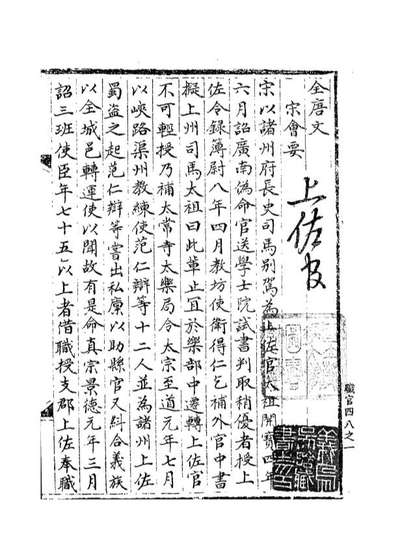 全唐文
宋會要
上佐官
宋以諸州府長史司馬別駕為上佐官太祖開寶四年
六月詔廣南偽命官送學士院試書判取稍優者授上
佐令錄簿尉八年四月教坊使衛得仁乞補外官中書
擬上州司馬太祖曰此輩止宜於樂部中遷轉上佐官
不可輕授乃補太常寺太樂局令太宗至道元年七月
以峽路渠州教練使范仁辯等十二人並為諸州上佐
蜀盜之起范仁辯等嘗出私廩以助縣官又糾合義族
以全城邑轉運使以聞故有是命真宗景德元年三月
詔三班使臣年七十五以上者借職授支郡上佐奉職
職官四八之一